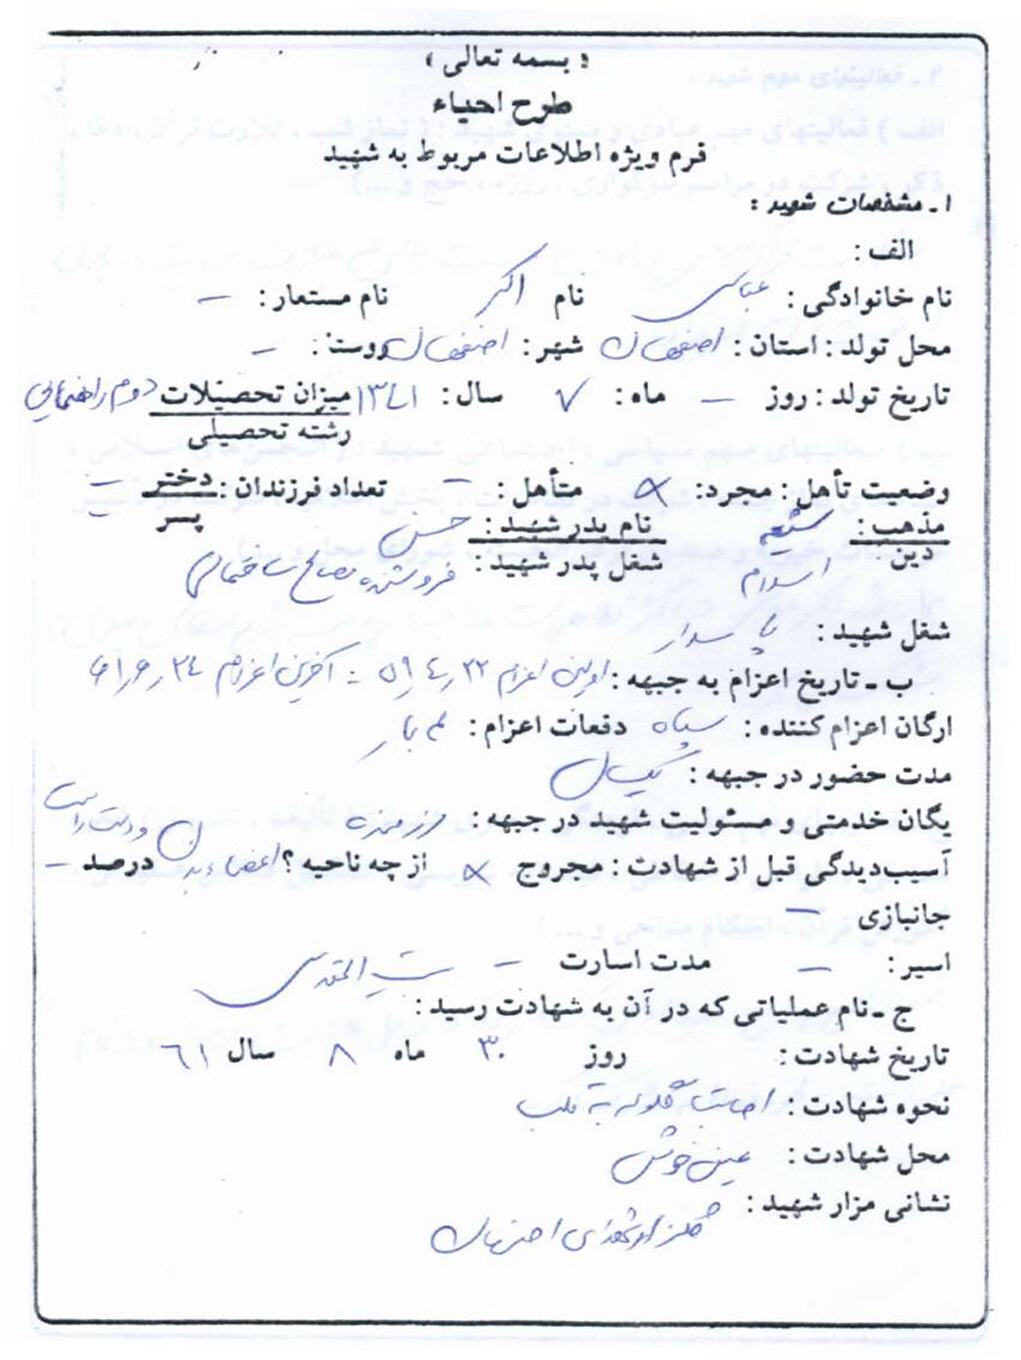 « بسمه تعالی »
طرح احیاء
فرم ویژه اطلاعات مربوط به شهید
۱ـ مشخصات شهید :
الف :
نام خانوادگی : عباسی نام اکبر نام مستعار : –
محل تولد : استان : اصفهان شهر : اصفهان روستا : –
تاریخ تولد : روز – ماه : ۷ سال : ۱۳۴۱ میزان تحصیلات دوم راهنمایی
رشته تحصیلی
وضعیت تأهل : مجرد : × متأهل : – تعداد فرزندان : دختر –
پسر
مذهب : شیعه نام پدر شهید : حسن
دین : اسلام شغل پدر شهید : فروشنده مصالح ساختمانی
شغل شهید : پاسدار
ب ـ تاریخ اعزام به جبهه : اولین اعزام ۲۲ر۴ر۵۹ : آخرین اعزام ۲۴ر۶ر۶۱
ارگان اعزام کننده : سپاه دفعات اعزام : بار
مدت حضور در جبهه : یکسال
یگان خدمتی و مسئولیت شهید در جبهه : رزمنده
آسیب‌دیدگی قبل از شهادت : مجروح × از چه ناحیه ؟ اعضاء بدن ودست راست درصد –
جانبازی –
اسیر : – مدت اسارت –
ج ـ نام عملیاتی که در آن به شهادت رسید : بیت المقدس
تاریخ شهادت : روز ۳۰ ماه ۸ سال ۶۱
نحوه شهادت : اصابت گلوله به قلب
محل شهادت : عین خوش
نشانی مزار شهید : گلزار شهدای اصفهان